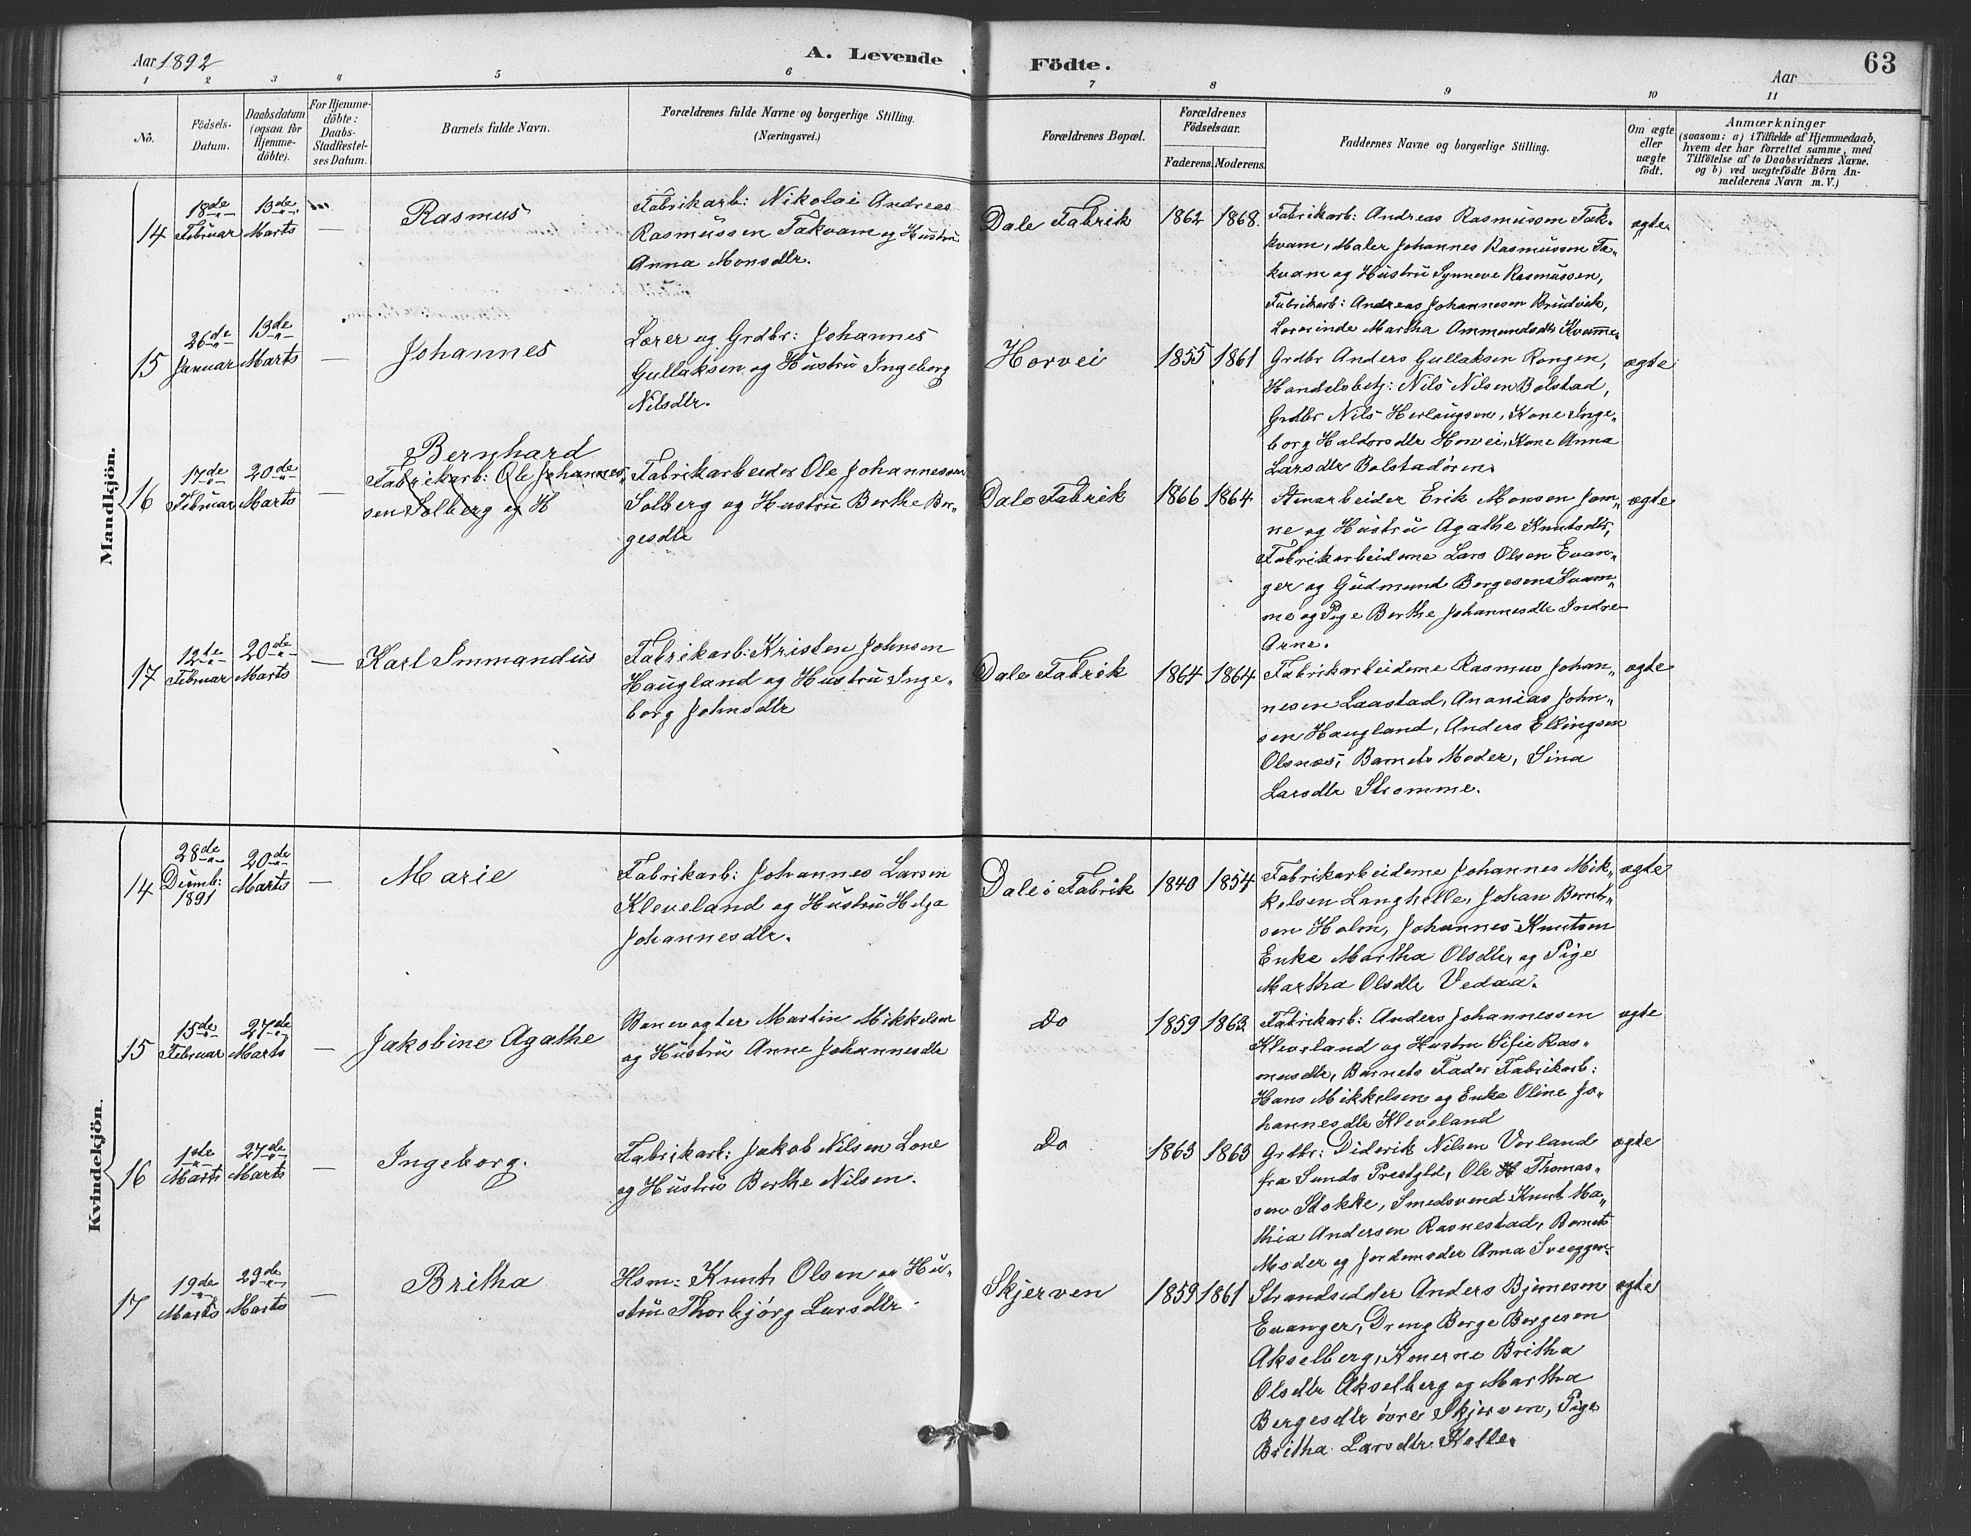 Aar 1892
A. Levende
Födte.
Aar
63
1 2 3 4 5 6 7 8 9 10 11
No.
Födsels-
Datum.
Daabsdatum
(ogsaa for
Hjemme-
döbte).
For Hjemme-
döbte:
Daabs-
Stadfæstel-
ses Datum.
Barnets fulde Navn.
Forældrenes fulde Navne og borgerlige Stilling.
(Næringsvei.)
Forældrenes Bopæl.
Forældrenes
Födselsaar.
Faderens. Moderens.
Faddernes Navne og borgerlige Stilling.
Om ægte
eller
uægte
födt.
Anmærkninger
(saasom: a) i Tilfælde af Hjemmedaab,
hvem der har forrettet samme, med
Tilföielse af to Daabsvidners Navne.
og b) ved uægtefödte Börn An-
melderens Navn m. V.)
Mandkjön.
14
18de
Februar
13de
Marts
—
Rasmus
Fabrikarb: Nikolai Andreas
Rasmussen Takvam og Hustru
Anna Monsdtr.
Dale Fabrik
1862
1868.
Fabrikarb: Andreas Rasmussen Tak-
kvam, Maler Johannes Rasmussen Ta-
kvam og Hustru Synneve Rasmussen,
Fabrikarb: Andreas Johannesen Brudvik,
Lærerinde Martha Ammundsdtr Kvamme.
ægte
15
26de
Januar
13de
Marts
—
Johannes
Lærer og Grdbr: Johannes
Gullaksen og Hustru Ingeborg
Nilsdtr.
Horvei
1855
1861
Grdbr Anders Gullaksen Rongen,
Handelsbetj: Nils Nilsen Bolstad,
Grdbr Nils Herlaugsen, Kone Inge-
borg Haldorsdtr Horvei, Kone Anna
Larsdtr Bolstadøren.
ægte
16
17de
Februar
20de
Marts
—
Bernhard
Fabrikarb: Ole Johannes-
sen Solberg og H
Fabrikarbeider Ole Johannesen
Solberg og Hustru Berthe Bør-
gesdtr
Dale Fabrik
1866
1864
Stenarbeider Erik Monsen Jom-
ne og Hustru Agathe Knutsdtr,
Fabrikarbeiderne Lars Olsen Evan-
ger og Gudmund Børgesen Kvam-
me og Pige Berthe Johannesdtr Indre
Arne.
ægte
17
12te
Februar
20de
Marts
—
Karl Immandus
Fabrikarb: Kristen Johnsen
Haugland og Hustru Inge-
borg Johnsdtr
Dale Fabrik
1864
1864
Fabrikarbeiderne Rasmus Johan-
nesen Laastad, Ananias John-
sen Haugland, Anders Ellingsen
Olsnæs, Barnets Moder, Sina
Larsdtr Strømme.
ægte
Kvindekjön.
14
28de
Decmb:
1891
20de
Marts
—
Marie
Fabrikarb: Johannes Larsen
Kleveland og Hustru Helga
Johannesdtr.
Dale Fabrik
1840
1854
Fabrikarbeiderne Johannes Mik-
kelsen Langhelle, Johan Bernt-
sen Holm, Johannes Knutsen
Enke Martha Olsdtr, og Pige
Martha Olsdtr Vedaa.
ægte
15
15de
Februar
27de
Marts
—
Jakobine Agathe
Banevogter Martin Mikkelsen
og Hustru Anne Johannesdtr
Do
1859
1863
Fabrikarb: Anders Johannessen
Kleveland og Hustru Sifie Ras-
musdtr, Barnets Fader Fabrikarb:
Hans Mikkelsen og Enke Oline Jo-
hannesdtr Kleveland
ægte
16
1de
Marts
27de
Marts
—
Ingeborg.
Fabrikarb: Jakob Nilsen Lone
og Hustru Berthe Nilsen.
Do
1863
1863
Grdbr: Diderik Nilsen Vorland
fra Sunds Prestgld, Ole Thomas-
sen Stokke, Smedsvend Knut Ma-
thia Andersen Rasnestad, Barnets
Moder og Jordemoder Anna
ægte
17
19de
Marts
29de
Marts
—
Britha
Hsm: Knut Olsen og Hu-
stru Thorbjørg Larsdtr.
Skjerven
1859
1861
Strandsidder Anders Bjørnesen
Evanger, Dreng Børge Børgesen
Akselberg, Konerne Britha
Olsdtr Akselberg og Martha
Børgesdtr øvre Skjerven, Pige
Britha Larsdtr Helle.
ægte